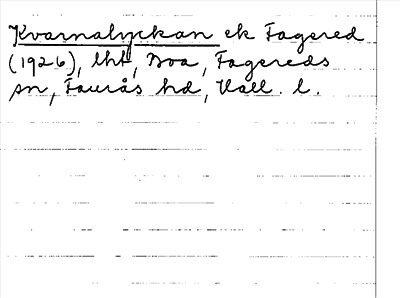 Kvarnalyckan ek Fagered
(1926), lht, Boa, Fagereds
sn, Faurås hd, Hall. l.